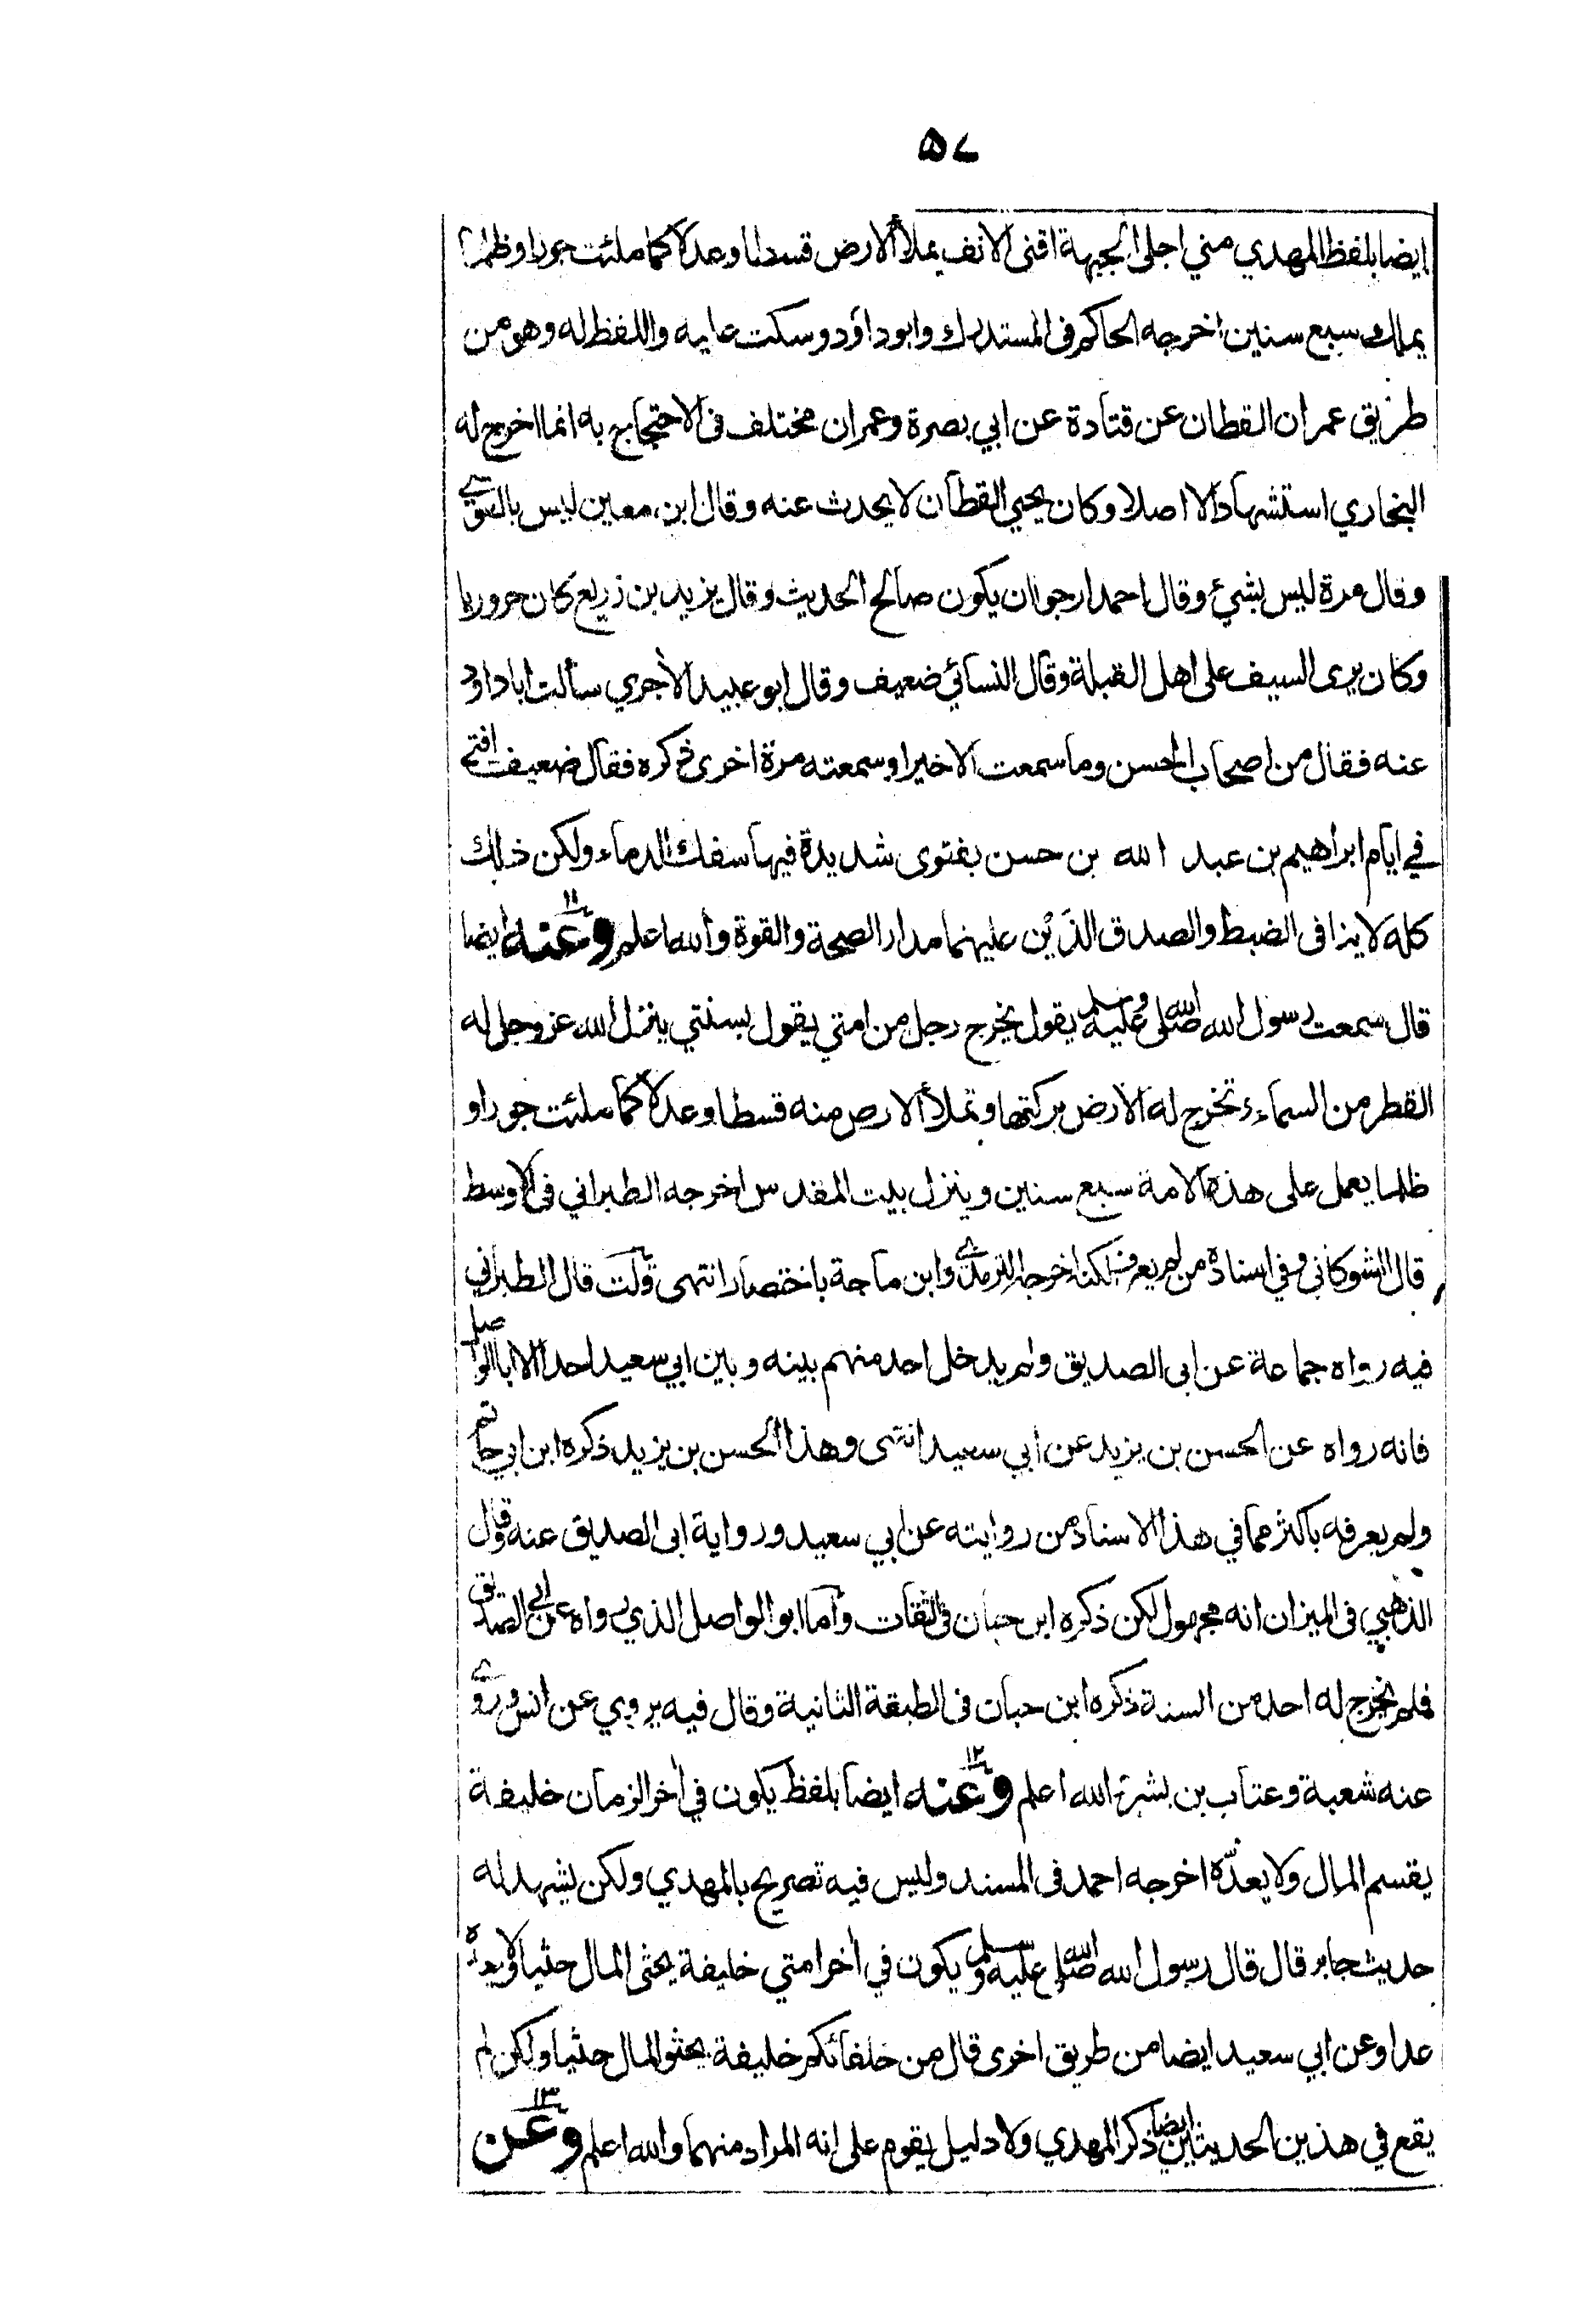 ۵۷
ايضا بلفظ المهدي مني اجلى الجبهة اقنى الانف يملأ الارض قسطا وعدلا كما ملئت جورا وظلما
يملك سبع سنين اخرجه الحاكم فى المستدرك وابو داؤد وسكت عليه واللفظ له وهو من
طريق عمران القطان عن قتادة عن ابي بصرة وعمران مختلف فى الاحتجاج به انما اخرج له
البخاري استشهادا لا اصلا وكان يحيي القطان لا يحدث عنه وقال ابن معين ليس بالقوي
وقال مرة ليس بشيء وقال احمد ارجوان يكون صالح الحديث وقال يزيد بن زريع كان حروريا
وكان يرى السيف على اهل القبلة وقال النسائي ضعيف وقال ابو عبيد الآجري سألت ابا داود
عنه فقال من اصحاب الحسن وما سمعت الا خيرا وسمعته مرة اخرى ذكره فقال ضعيف افتى
في ايام ابراهيم بن عبد الله بن حسن بفتوى شديدة فيها سفك الدماء ولكن ذلك
كله لا ينافى الضبط والصدق الذَين عليهما مدار الصحة والقوة والله اعلم وعنه ۱۱ ايضا
قال سمعت رسول الله صلى الله عليه وسلم يقول يخرج رجل من امتي يقول بسنتي ينزل الله عز وجل له
القطر من السماء وتخرج له الارض بركتها وتملأ الارض منه قسطا وعدلا كما ملئت جورا و
ظلما يعمل على هذه الامة سبع سنين وينزل بيت المقدس اخرجه الطبراني فى الاوسط
قال الشوكاني وفي اسناده من لم يعرف لكنه اخرجه الترمذي وابن ماجة باختصار انتهى قلت قال الطبراني
فيه رواه جماعة عن ابى الصديق ولم يدخل احد منهم بينه وبين ابي سعيد احدا الا ابا الواصل
فانه رواه عن الحسن بن يزيد عن ابي سعيد انتهى وهذا الحسن بن يزيد ذكره ابن ابي حاتم
ولم يعرفه باكثر مما في هذا الاسناد من روايته عن ابي سعيد ورواية ابى الصديق عنه وقال
الذهبي فى الميزان انه مجهول لكن ذكره ابن حبان فى الثقات واما ابو الواصل الذي رواه عن ابي الصديق
فلم يخرج له احد من الستة ذكره ابن حبان فى الطبقة الثانية وقال فيه يروي عن انس وروى
عنه شعبة وعتاب بن بشر والله اعلم وعنه ۱۲ ايضا بلفظ يكون في آخر الزمان خليفة
يقسم المال ولا يعدّه اخرجه احمد فى المسند وليس فيه تصريح بالمهدي ولكن يشهد له
حديث جابر قال قال رسول الله صلى الله عليه وسلم يكون في آخر امتي خليفة يحثى المال حثيا ولا يعده
عدا وعن ابي سعيد ايضا من طريق اخرى قال من خلفائكم خليفة يحثو المال حثيا ولكن لم
يقع في هذين الحديثين ايضا ذكر المهدي ولا دليل يقوم على انه المراد منهما والله اعلم وعن ۱۳